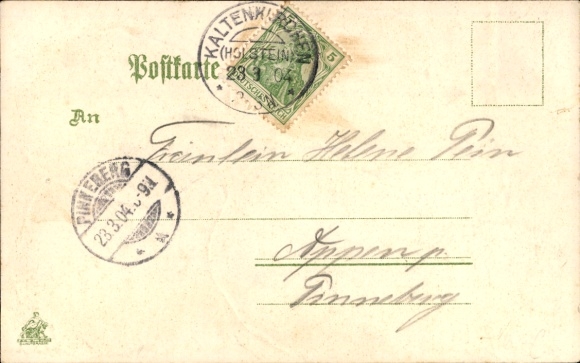 KALTENKIRCHEN
(HOLSTEIN)
23.3.04
5
Postkarte
An
Fräulein Helene Pein
PINNEBERG
23.3.04.
N
Appen p.
Pinneberg